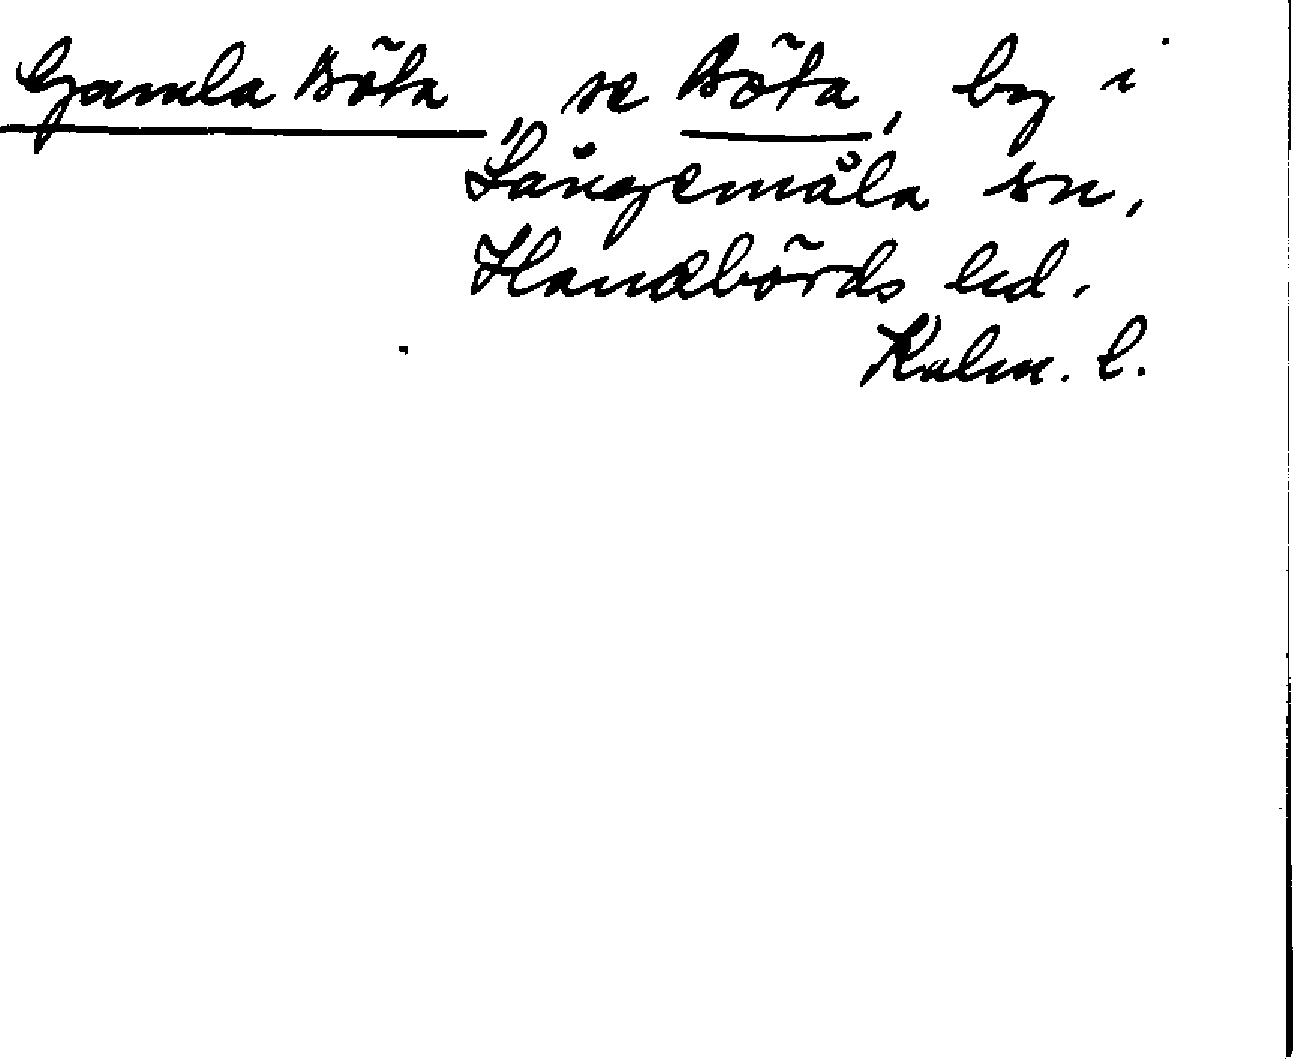 Gamla Böta, se Böta, by i
Långemåla sn,
Handbörds hd.
Kalm. l.